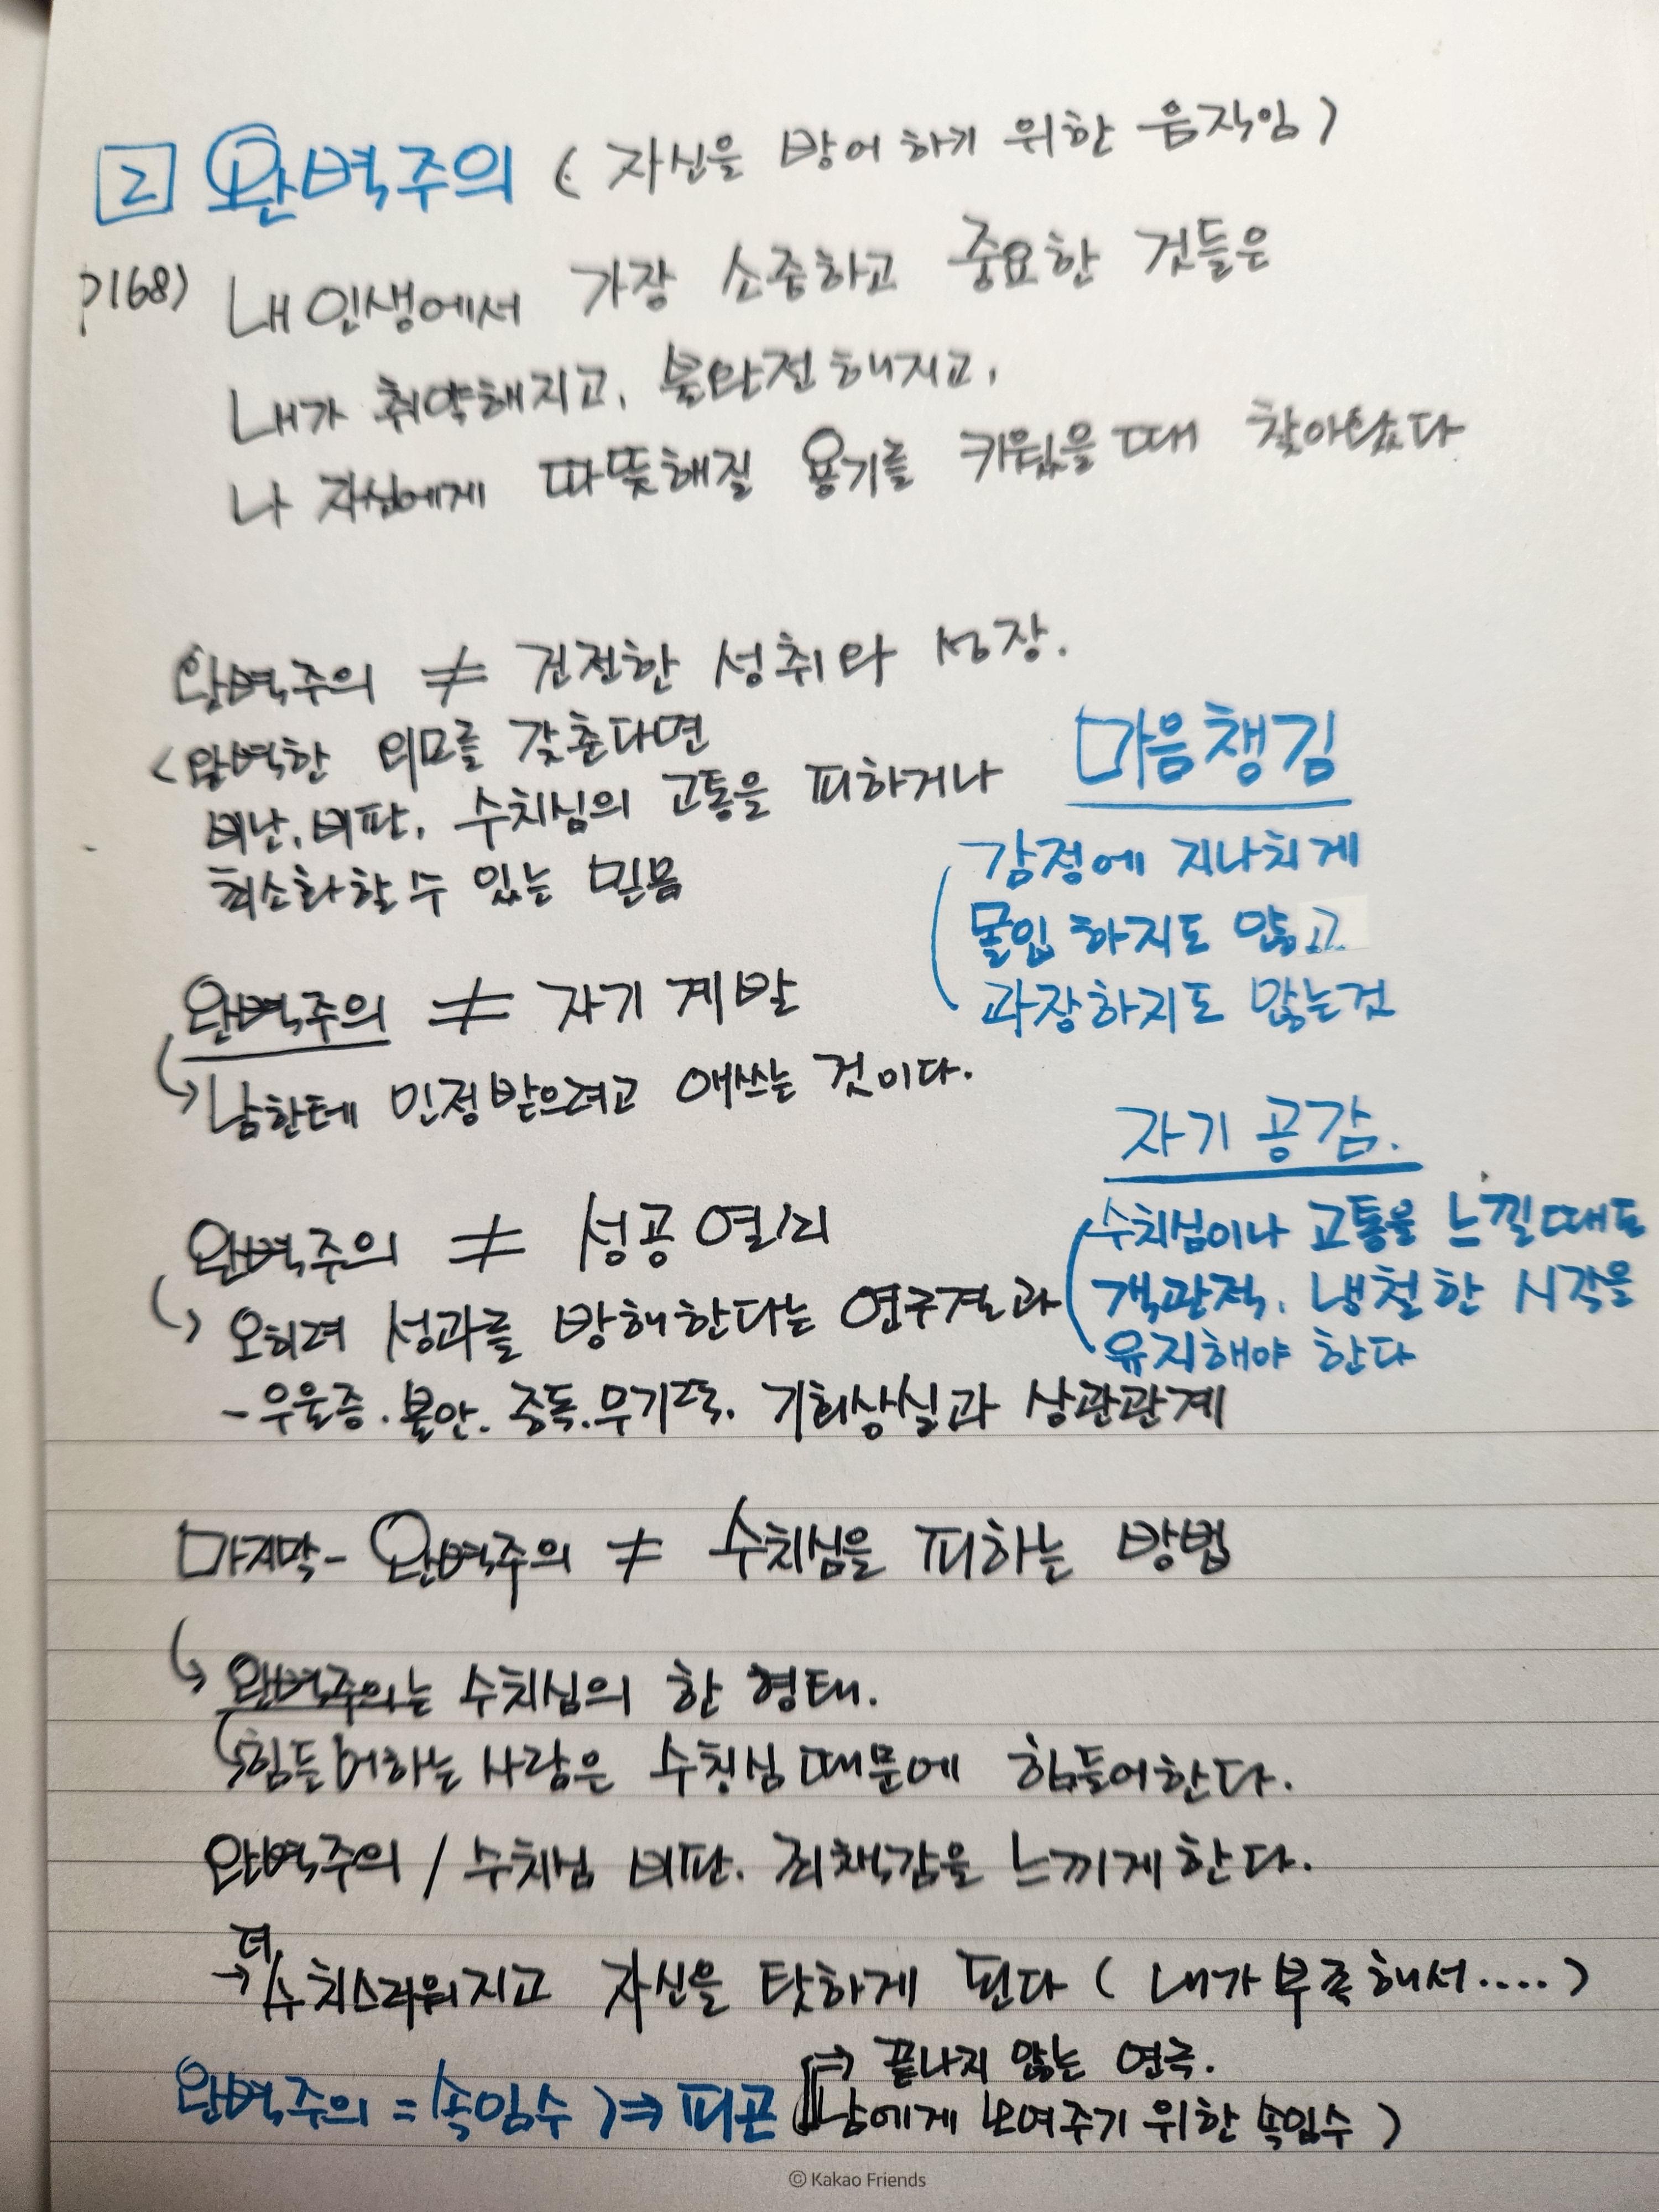 2 완벽주의 ( 자신을 방어하기 위한 움직임 )
P168) 내 인생에서 가장 소중하고 중요한 것들은
내가 취약해지고, 불완전해지고,
나 자신에게 따뜻해질 용기를 키웠을때 찾아왔다
완벽주의 ≠ 건전한 성취와 성장.
< 완벽한 외모를 갖춘다면
비난, 비판, 수치심의 고통을 피하거나
최소화할 수 있는 믿음
마음챙김
감정에 지나치게
몰입 하지도 않고
과장하지도 않는것
완벽주의 ≠ 자기 계발
↳ 남한테 인정받으려고 애쓰는 것이다.
자기 공감.
수치심이나 고통을 느낄때도
객관적, 냉철한 시각을
유지해야 한다
완벽주의 ≠ 성공 열쇠
↳ 오히려 성과를 방해한다는 연구결과
- 우울증. 불안. 중독. 무기력. 기회상실과 상관관계
마지막 - 완벽주의 ≠ 수치심을 피하는 방법
↳ 완벽주의는 수치심의 한 형태.
↳ 힘들어하는 사람은 수칭심 때문에 힘들어한다.
완벽주의 / 수치심 비판. 죄책감을 느끼게 한다.
→ 더 수치스러워지고 자신을 탓하게 된다 ( 내가 부족해서.... )
완벽주의 = (속임수) ⇒ 피곤
⇒ 끝나지 않는 연극.
남에게 보여주기 위한 속임수 )
© Kakao Friends